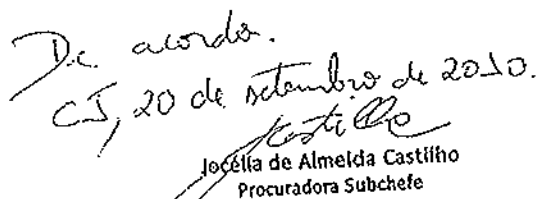 De acordo.
CJ, 20 de setembro de 2010.
Castilho
Jocélia de Almeida Castilho
Procuradora Subchefe